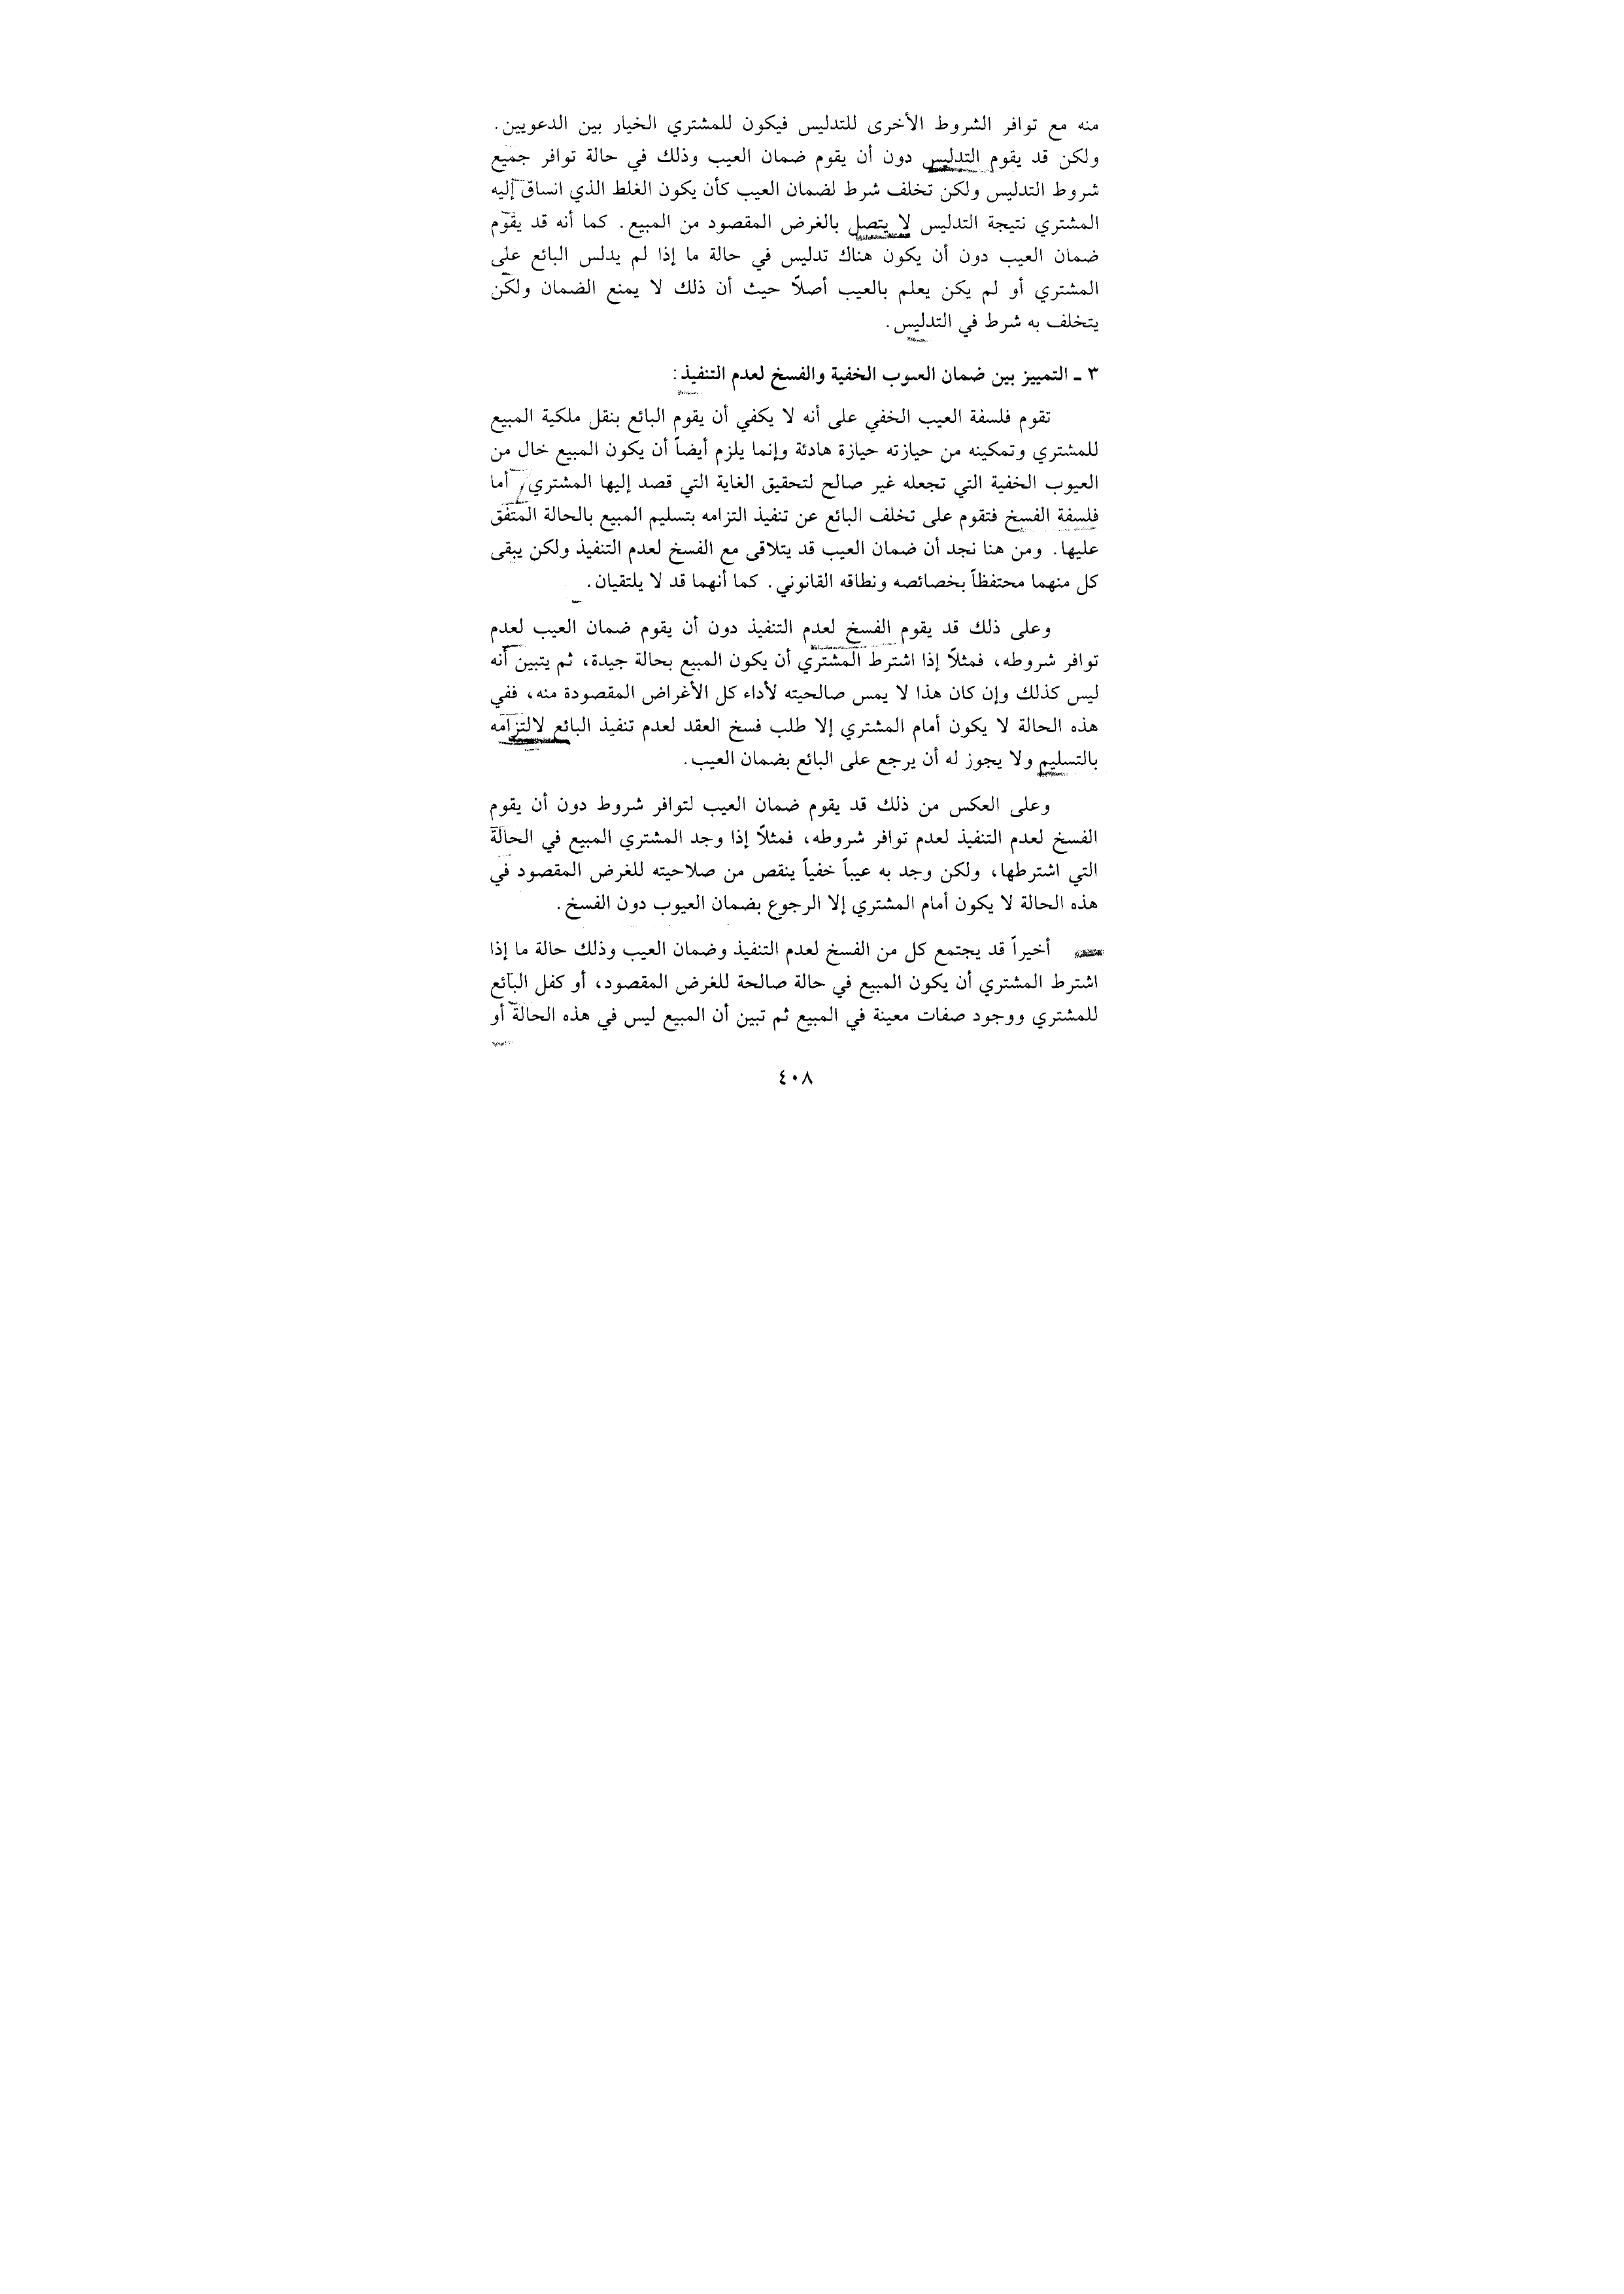 منه مع توافر الشروط الأخرى للتدليس فيكون للمشتري الخيار بين الدعويين.
ولكن قد يقوم التدليس دون أن يقوم ضمان العيب وذلك في حالة توافر جميع
شروط التدليس ولكن تخلف شرط لضمان العيب كأن يكون الغلط الذي انساق إليه
المشتري نتيجة التدليس لا يتصل بالغرض المقصود من المبيع. كما أنه قد يقوم
ضمان العيب دون أن يكون هناك تدليس في حالة ما إذا لم يدلس البائع على
المشتري أو لم يكن يعلم بالعيب أصلاً حيث أن ذلك لا يمنع الضمان ولكن
يتخلف به شرط في التدليس.
٣ ـ التمييز بين ضمان العيوب الخفية والفسخ لعدم التنفيذ:
تقوم فلسفة العيب الخفي على أنه لا يكفي أن يقوم البائع بنقل ملكية المبيع
للمشتري وتمكينه من حيازته حيازة هادئة وإنما يلزم أيضاً أن يكون المبيع خال من
العيوب الخفية التي تجعله غير صالح لتحقيق الغاية التي قصد إليها المشتري، أما
فلسفة الفسخ فتقوم على تخلف البائع عن تنفيذ التزامه بتسليم المبيع بالحالة المتفق
عليها. ومن هنا نجد أن ضمان العيب قد يتلاقى مع الفسخ لعدم التنفيذ ولكن يبقى
كل منهما محتفظاً بخصائصه ونطاقه القانوني. كما أنهما قد لا يلتقيان.
وعلى ذلك قد يقوم الفسخ لعدم التنفيذ دون أن يقوم ضمان العيب لعدم
توافر شروطه، فمثلاً إذا اشترط المشتري أن يكون المبيع بحالة جيدة، ثم يتبين أنه
ليس كذلك وإن كان هذا لا يمس صالحيته لأداء كل الأغراض المقصودة منه، ففي
هذه الحالة لا يكون أمام المشتري إلا طلب فسخ العقد لعدم تنفيذ البائع لالتزامه
بالتسليم ولا يجوز له أن يرجع على البائع بضمان العيب.
وعلى العكس من ذلك قد يقوم ضمان العيب لتوافر شروط دون أن يقوم
الفسخ لعدم التنفيذ لعدم توافر شروطه، فمثلاً إذا وجد المشتري المبيع في الحالة
التي اشترطها، ولكن وجد به عيباً خفياً ينقص من صلاحيته للغرض المقصود في
هذه الحالة لا يكون أمام المشتري إلا الرجوع بضمان العيوب دون الفسخ.
أخيراً قد يجتمع كل من الفسخ لعدم التنفيذ وضمان العيب وذلك حالة ما إذا
اشترط المشتري أن يكون المبيع في حالة صالحة للغرض المقصود، أو كفل البائع
للمشتري ووجود صفات معينة في المبيع ثم تبين أن المبيع ليس في هذه الحالة أو
٤٠٨